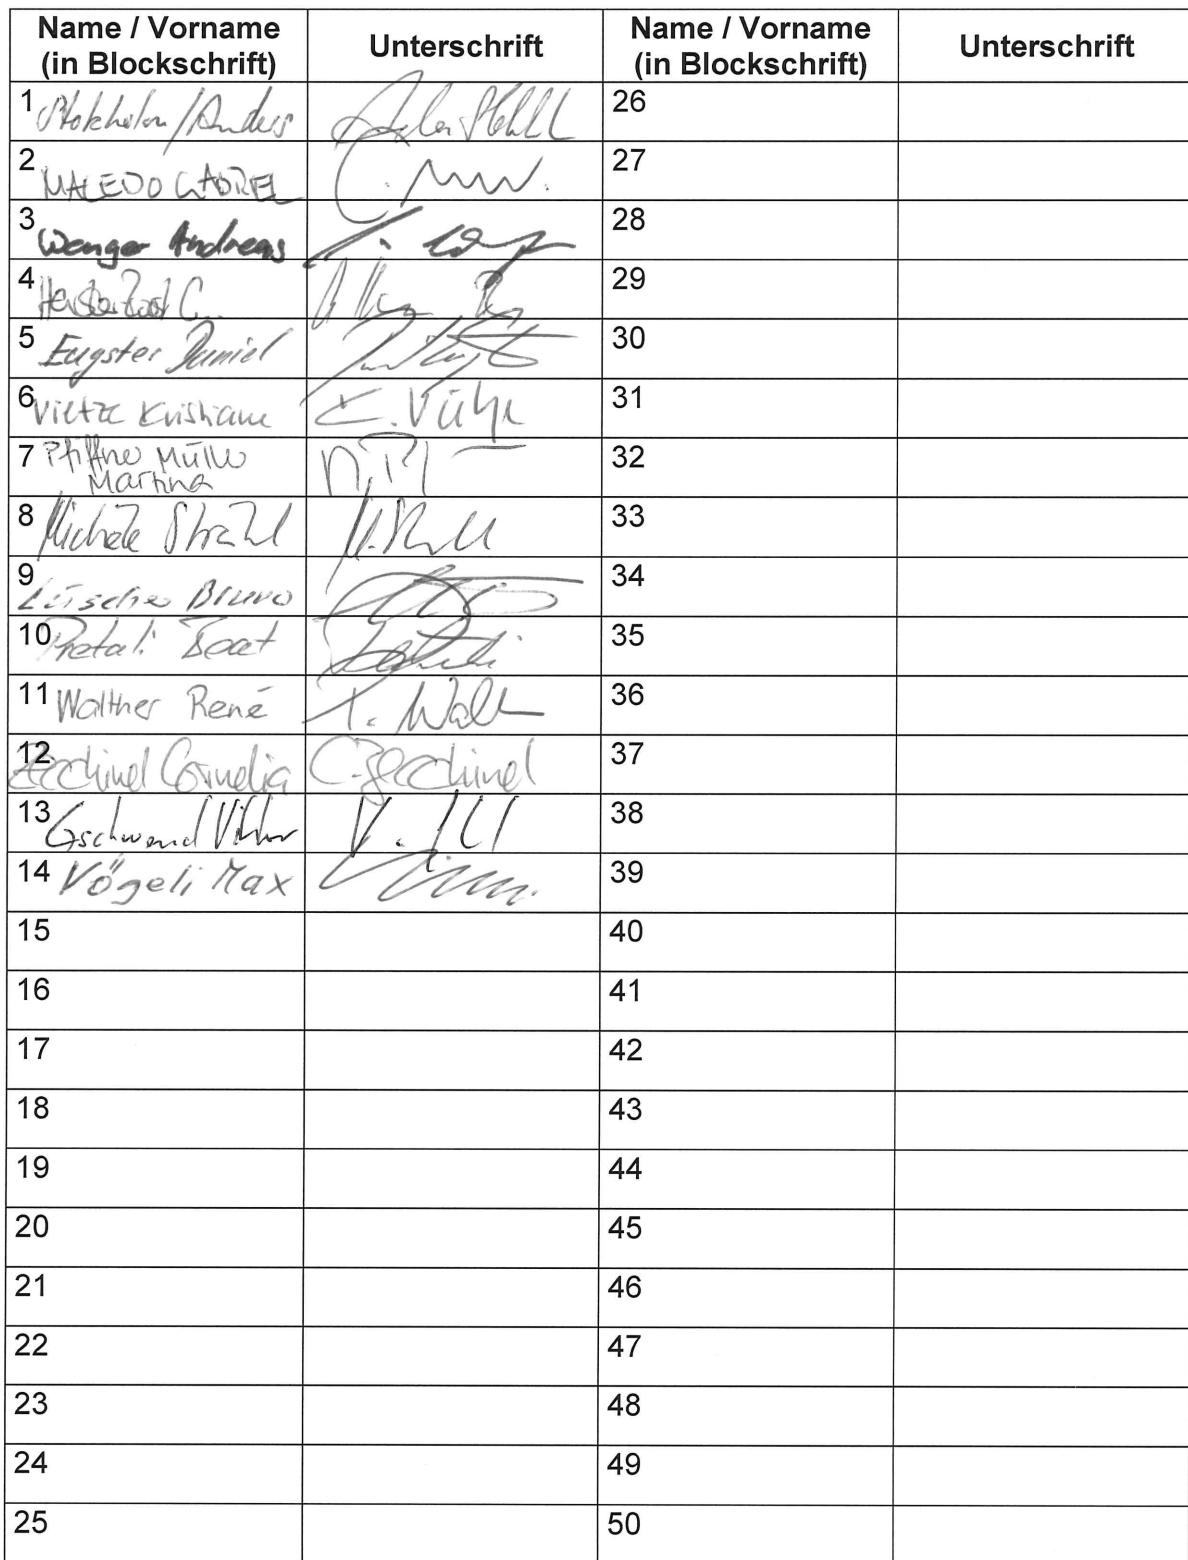 Name / Vorname
(in Blockschrift)
Unterschrift
Name / Vorname
(in Blockschrift)
Unterschrift
1 Stokholm / Anders
26
2 MACEDO GABRIEL
27
3 Wenger Andreas
28
4
29
5 Eugster Daniel
30
6 Vietze Kristiane
K. Vietze
31
7 Pfiffner Müller
Martina
32
8 Michèle Strähl
M. Strähl
33
9 Lüscher Bruno
34
10 Pretali Beat
35
11 Walther René
36
12 Zecchinel Cornelia
C. Zecchinel
37
13 Gschwend Viktor
38
14 Vögeli Max
39
15
40
16
41
17
42
18
43
19
44
20
45
21
46
22
47
23
48
24
49
25
50